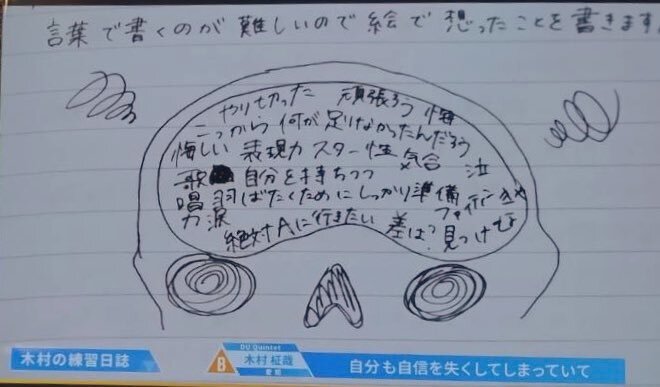 言葉で書くのが難しいので絵で想ったことを書きます
やり切った 頑張ろう 悔
こっから何が足りなかったんだろう
悔しい 表現力 スター性 気合 泣
歌 自分を持ちつつ
唱 羽ばたくためにしっかり準備
力 涙 ファイティン
絶対Aに行きたい 差は? 見つけせな
木村の練習日誌
DU Quintet
B 木村 柾哉
愛知
自分も自信を失くしてしまっていて